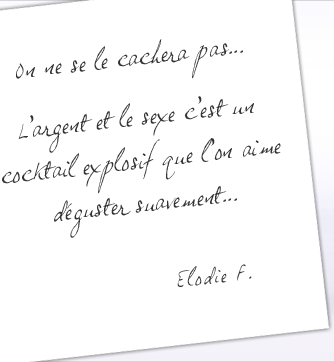 On ne se le cachera pas...
L'argent et le sexe c'est un
cocktail explosif que l'on aime
déguster suavement...
Elodie F.